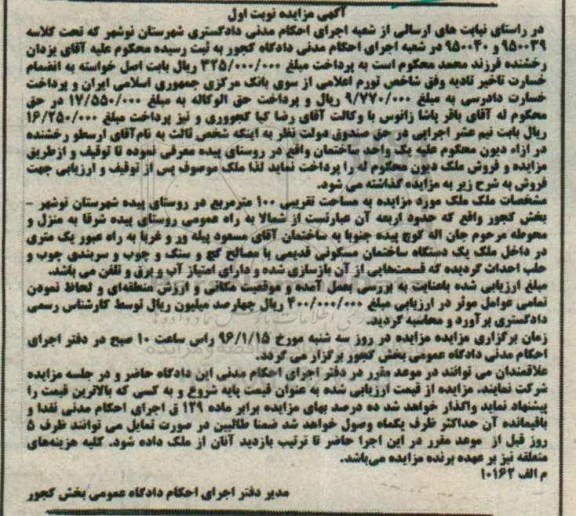 آگهی مزایده نوبت اول
در راستای نیابت های ارسالی از شعبه اجرای احکام مدنی دادگستری شهرستان نوشهر که تحت کلاسه
۹۵۰۰۳۹ و ۹۵۰۰۴۰ در شعبه اجرای احکام مدنی دادگاه کجور به ثبت رسیده محکوم علیه آقای یزدان
رخشنده فرزند محمد محکوم است به پرداخت مبلغ ۳۲۵/۰۰۰/۰۰۰ ریال بابت اصل خواسته به انضمام
خسارت تاخیر تادیه وفق شاخص تورم اعلامی از سوی بانک مرکزی جمهوری اسلامی ایران و پرداخت
خسارت دادرسی به مبلغ ۹/۷۷۰/۰۰۰ ریال و پرداخت حق الوکاله به مبلغ ۱۷/۵۵۰/۰۰۰ در حق
محکوم له آقای باقر پاشا زانوس با وکالت آقای رضا کیا کجووری و نیز پرداخت مبلغ ۱۶/۲۵۰/۰۰۰
ریال بابت نیم عشر اجرایی در حق صندوق دولت نظر به اینکه شخص ثالث به نام آقای ارسطو رخشنده
در ازاء دیون محکوم علیه یک واحد ساختمان واقع در روستای پیده معرفی نموده تا توقیف و ازطریق
مزایده و فروش ملک دیون محکوم له را پرداخت نماید لذا ملک موصوف پس از توقیف و ارزیابی جهت
فروش به شرح زیر به مزایده گذاشته می شود.
مشخصات ملک ملک مورد مزایده به مساحت تقریبی ۱۰۰ مترمربع در روستای پیده شهرستان نوشهر -
بخش کجور واقع که حدود اربعه آن عبارتست از شمالا به راه عمومی روستای پیده شرقا به منزل و
محوطه مرحوم جان اله کوچ پیده جنوبا به ساختمان آقای مسعود پیله ور و غربا به راه عبور یک متری
در داخل ملک یک دستگاه ساختمان مسکونی قدیمی با مصالح کچ و سنگ و چوب و سربندی چوب و
حلب احداث گردیده که قسمت‌هایی از آن بازسازی شده و دارای امتیاز آب و برق و تلفن می باشد.
مبلغ ارزیابی شده باعنایت به بررسی بعمل آمده و موقعیت مکانی و ارزش منطقه‌ای و لحاظ نمودن
تمامی عوامل موثر در ارزیابی مبلغ ۴۰۰/۰۰۰/۰۰۰ ریال چهارصد میلیون ریال توسط کارشناس رسمی
دادگستری برآورد و محاسبه گردید.
زمان برگزاری مزایده مزایده در روز سه شنبه مورخ ۹۶/۱/۱۵ راس ساعت ۱۰ صبح در دفتر اجرای
احکام مدنی دادگاه عمومی بخش کجور برگزار می گردد.
علاقمندان می توانند در موعد مقرر در دفتر اجرای احکام مدنی این دادگاه حاضر و در جلسه مزایده
شرکت نمایند. مزایده از قیمت ارزیابی شده به عنوان قیمت پایه شروع و به کسی که بالاترین قیمت را
پیشنهاد نماید واگذار خواهد شد ده درصد بهای مزایده برابر ماده ۱۲۹ ق اجرای احکام مدنی نقدا و
باقیمانده آن حداکثر ظرف یکماه وصول خواهد شد ضمنا طالبین در صورت تمایل می توانند ظرف ۵
روز قبل از موعد مقرر در این اجرا حاضر تا ترتیب بازدید آنان از ملک داده شود. کلیه هزینه‌های
متعلقه نیز بر عهده برنده مزایده می‌باشد.
م الف ۱۰۱۶۲
مدیر دفتر اجرای احکام دادگاه عمومی بخش کجور